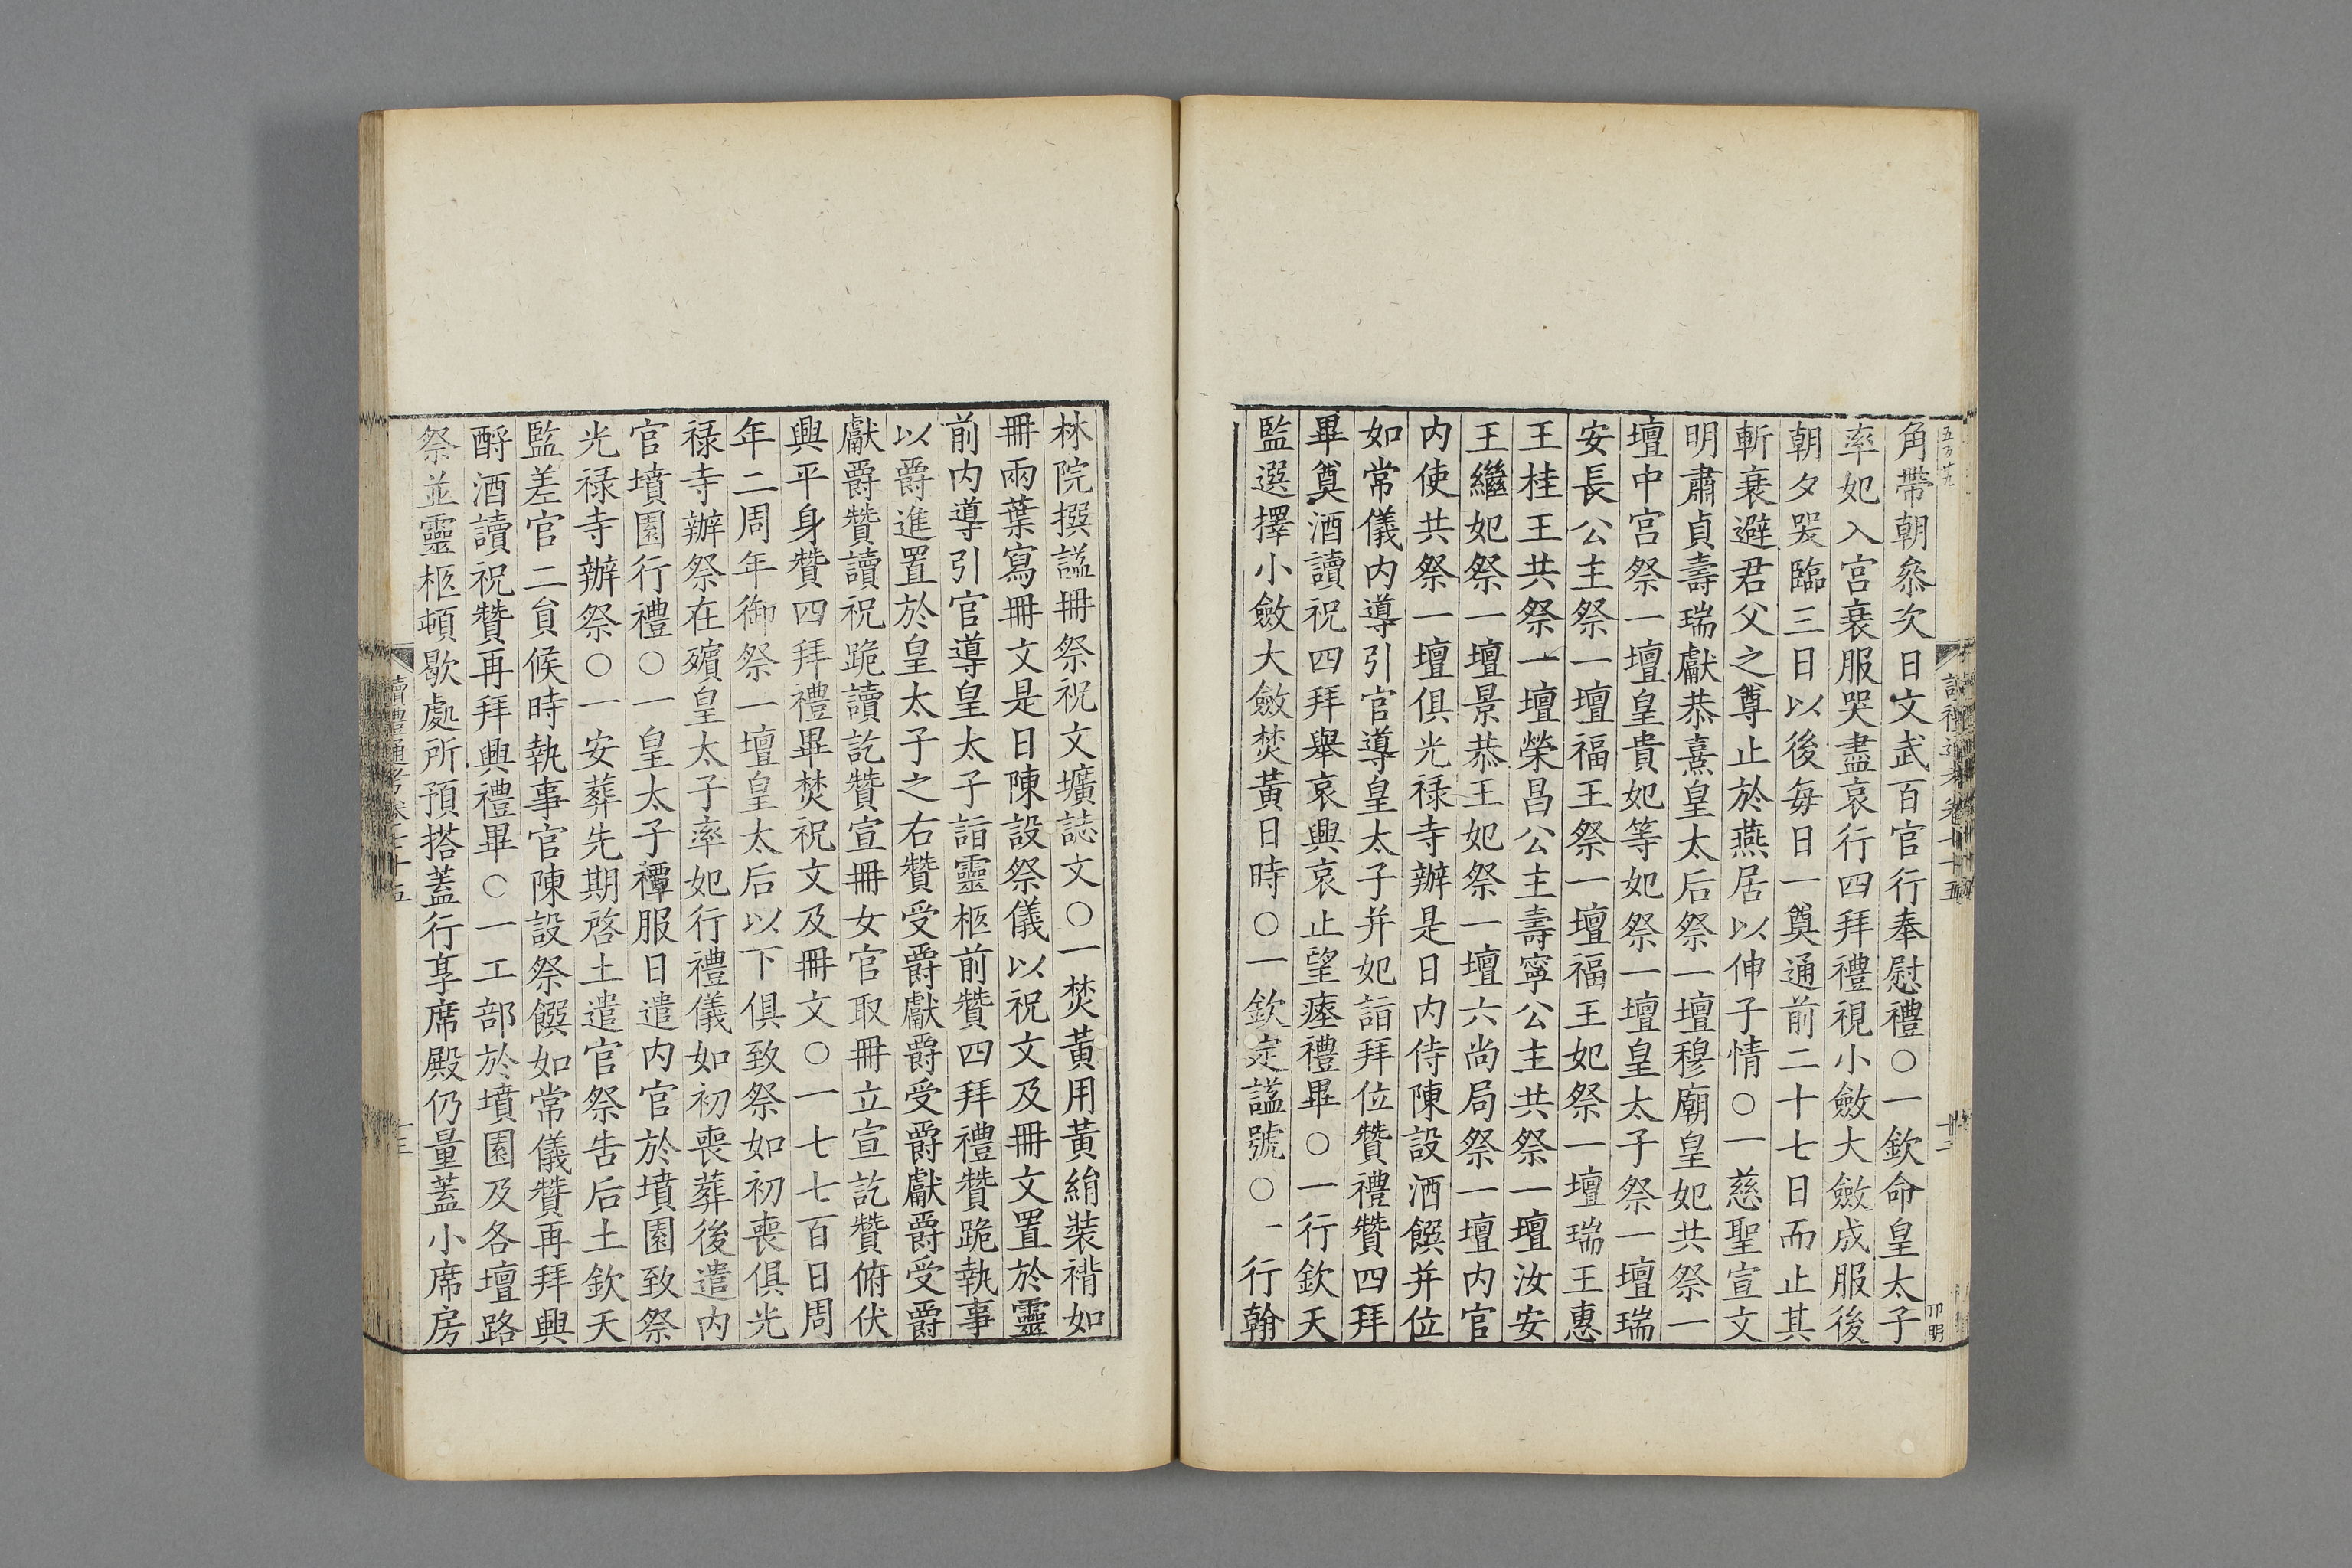 角帶朝叅次日文武百官行奉慰禮○一欽命皇太子
率妃入宮衰服哭盡哀行四拜禮視小斂大斂成服後
朝夕哭臨三日以後每日一奠通前二十七日而止其
斬衰避君父之尊止於燕居以伸子情○一慈聖宣文
明肅貞壽瑞獻恭熹皇太后祭一壇穆廟皇妃共祭一
壇中宮祭一壇皇貴妃等妃祭一壇皇太子祭一壇瑞
安長公主祭一壇福王祭一壇福王妃祭一壇瑞王惠
王桂王共祭一壇榮昌公主壽寧公主共祭一壇汝安
王繼妃祭一壇景恭王妃祭一壇六尚局祭一壇内官
内使共祭一壇俱光禄寺辦是日内侍陳設酒饌并位
如常儀内導引官導皇太子并妃詣拜位贊禮贊四拜
畢奠酒讀祝四拜舉哀興哀止望瘞禮畢○一行欽天
監選擇小斂大斂焚黃日時○一欽定諡號○一行翰
林院撰諡冊祭祝文壙誌文○一焚黃用黃絹裝褙如
冊兩葉寫冊文是日陳設祭儀以祝文及冊文置於靈
前内導引官導皇太子詣靈柩前贊四拜禮贊跪執事
以爵進置於皇太子之右贊受爵獻爵受爵獻爵受爵
獻爵贊讀祝跪讀訖贊宣冊女官取冊立宣訖贊俯伏
興平身贊四拜禮畢焚祝文及冊文○一七七百日周
年二周年御祭一壇皇太后以下俱致祭如初喪俱光
禄寺辦祭在殯皇太子率妃行禮儀如初喪葬後遣内
官墳園行禮○一皇太子禫服日遣内官於墳園致祭
光禄寺辦祭○一安葬先期啓土遣官祭告后土欽天
監差官二員候時執事官陳設祭饌如常儀贊再拜興
酹酒讀祝贊再拜興禮畢○一工部於墳園及各壇路
祭並靈柩頓歇處所預搭蓋行享席殿仍量蓋小席房